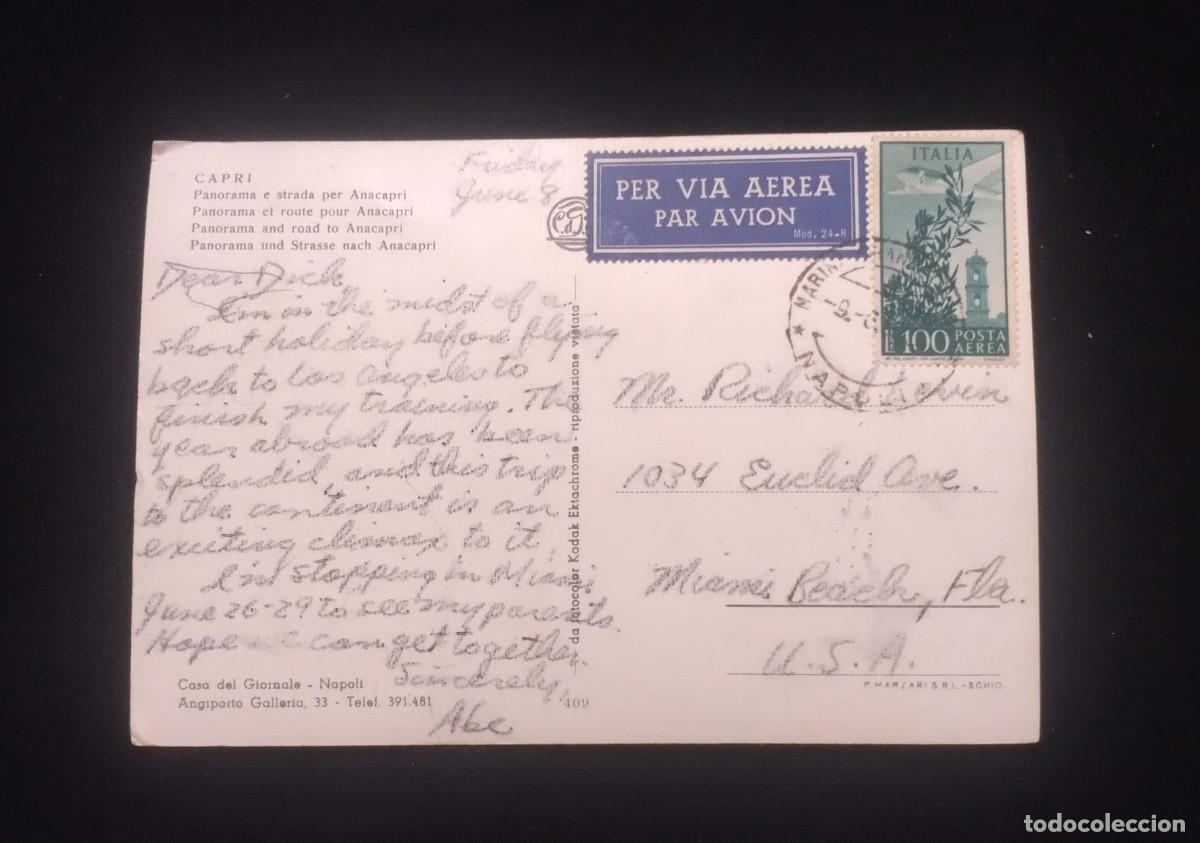 CAPRI
Panorama e strada per Anacapri
Panorama et route pour Anacapri
Panorama and road to Anacapri
Panorama und Strasse nach Anacapri
Friday
June 8
Dear Dick
I'm in the midst of a
short holiday before flying
back to Los Angeles to
finish my training. The
year abroad has been
splendid, and this trip
to the continent is an
exciting climax to it.
I'm stopping in Miami
June 26-29 to see my parents.
Hope we can get together.
Sincerely,
Abe
Casa del Giornale - Napoli
Angiporto Galleria, 33 - Telef. 391.481
409
da fotocolor Kodak Ektachrome - riproduzione vietata
PER VIA AEREA
PAR AVION
Mod. 24-R
ITALIA
LIRE 100 POSTA
AEREA
MARINA
NAPOLI
Mr. Richard Levin
1034 Euclid Ave.
Miami Beach, Fla.
U.S.A.
P. MARZARI S.R.L. - SCHIO
todocoleccion